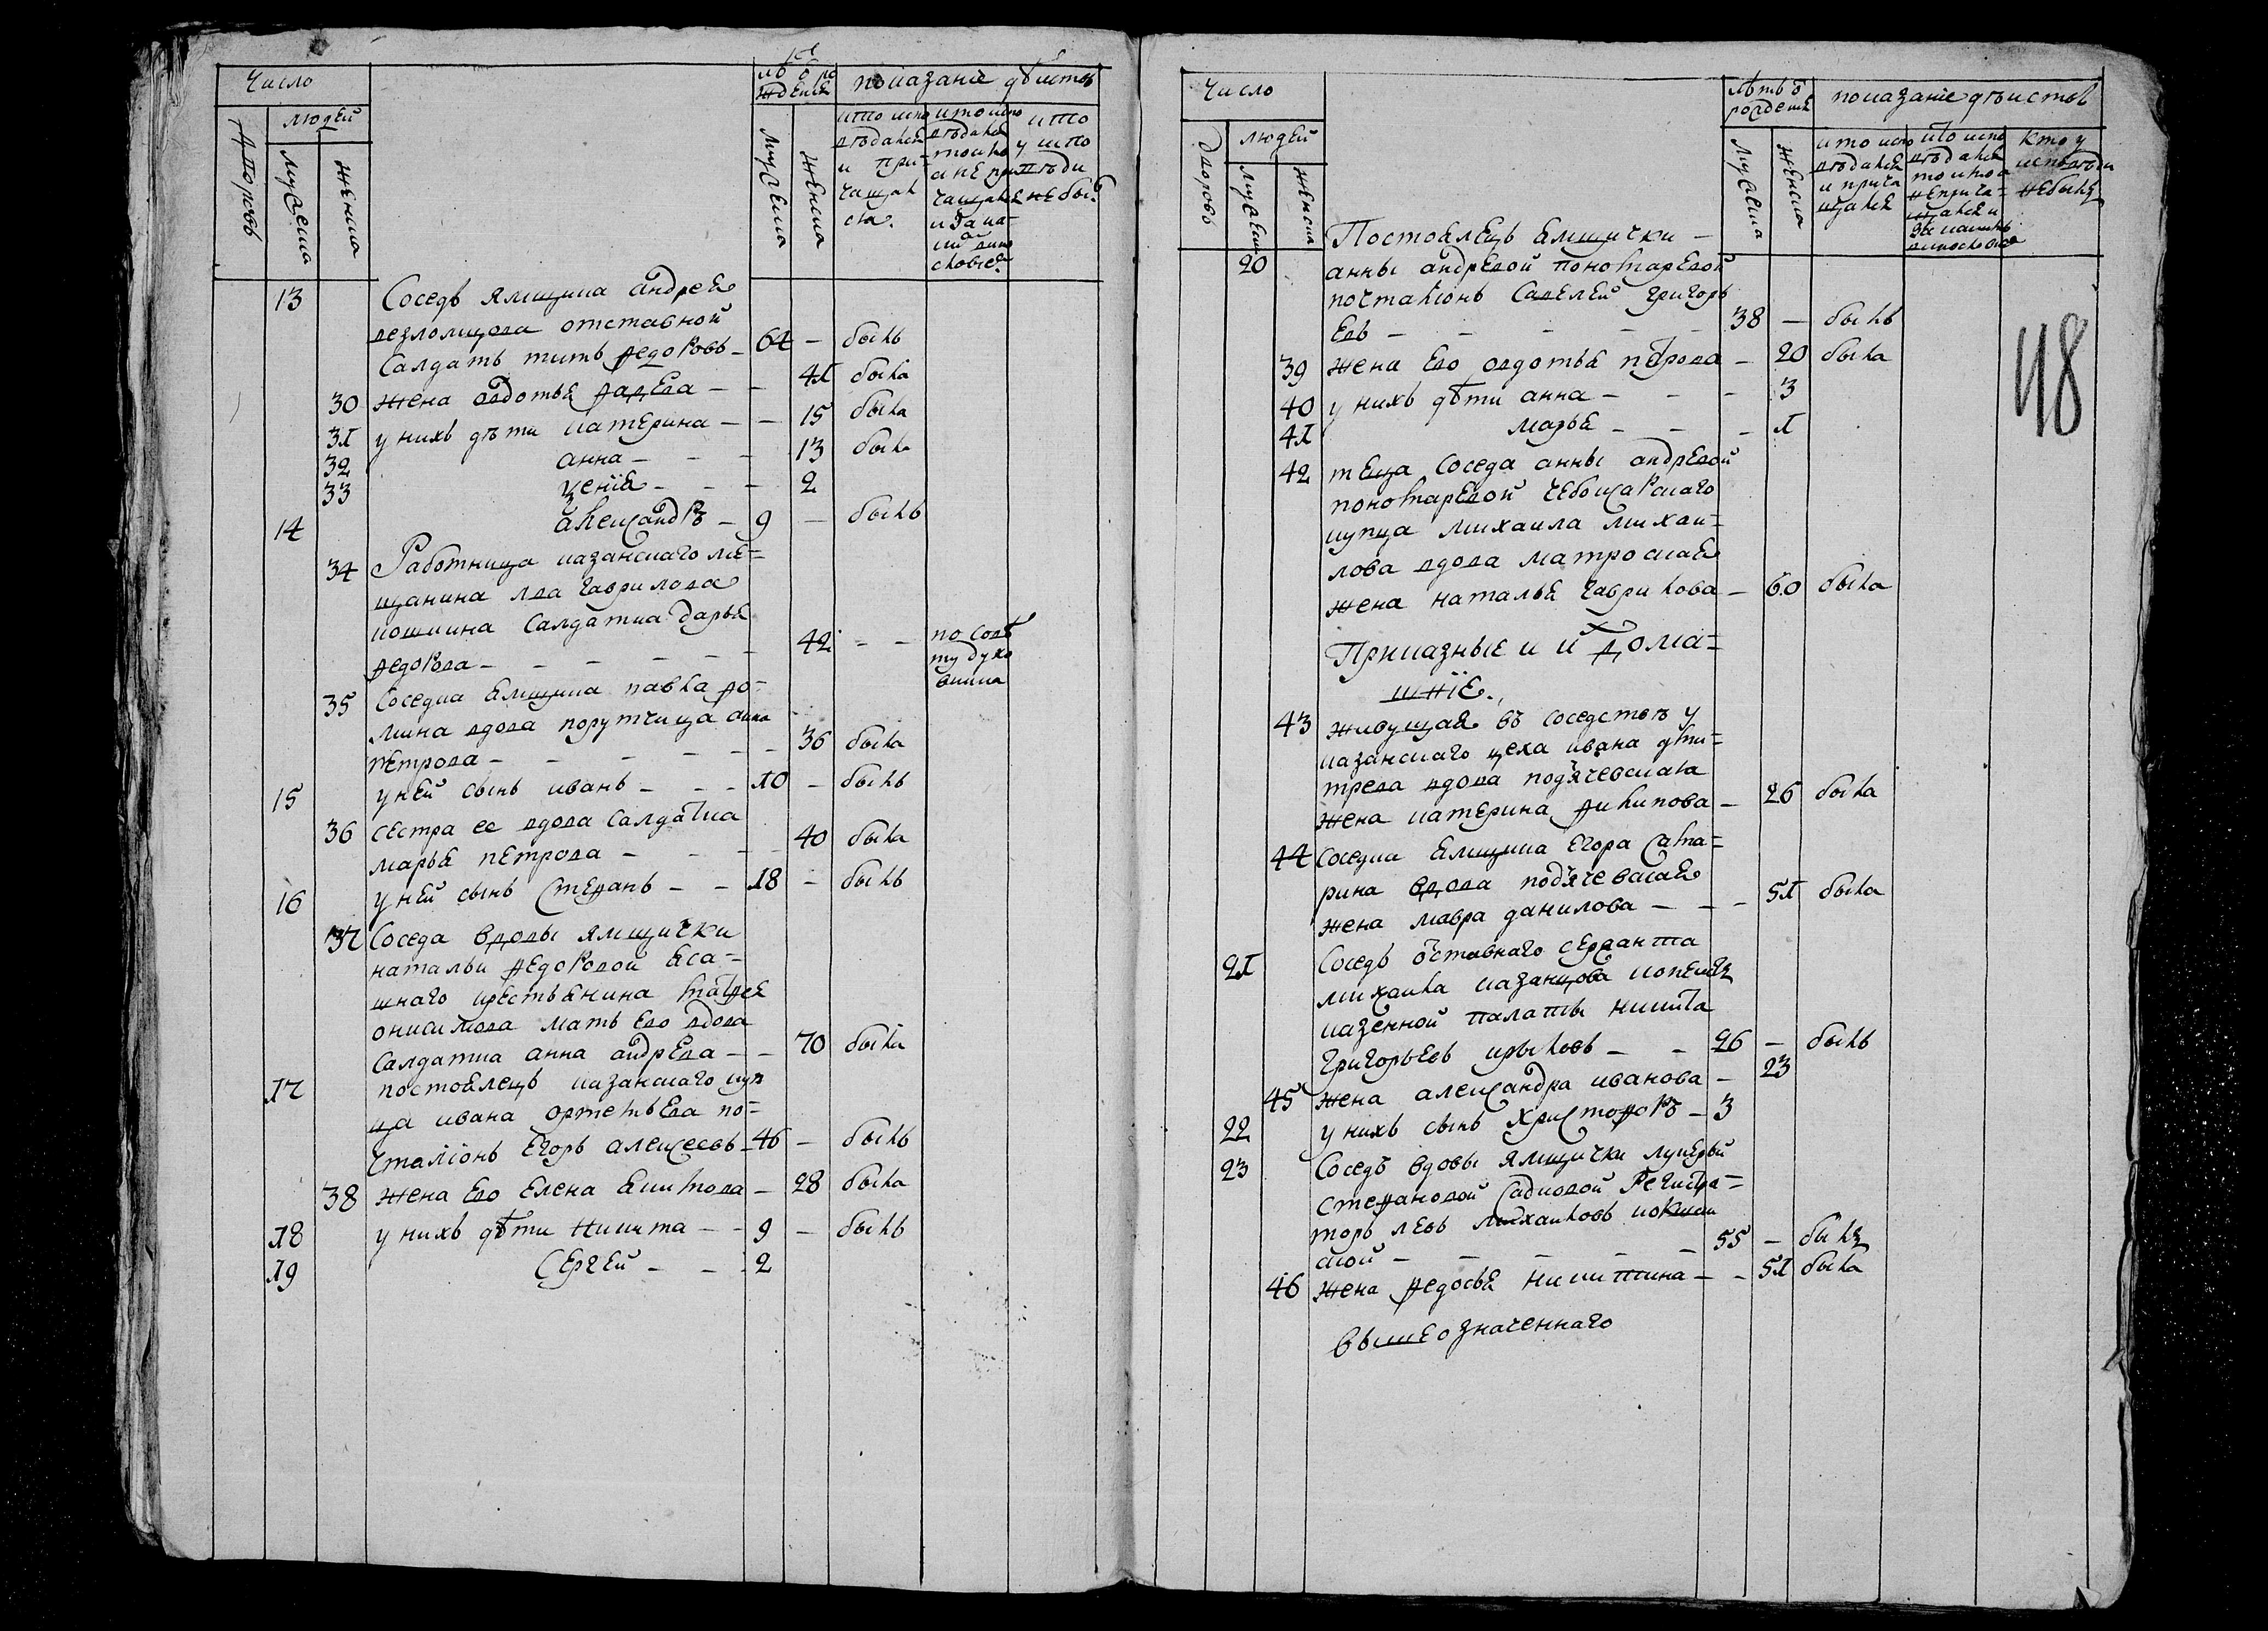 Число
людей
дворовъ
мужеска
женска
лѣтъ о рождения
показаніе дѣйствъ
мужеска
женска
кто испо
вѣдался
и при-
чащал
ся.
кто испо
вѣдался
токмо
а не при
чащался
и за ка-
ким вин
ословіе.
кто
у испо
вѣди
не был
13 Соседъ ямщика андрея
везломцова отставной
Салдатъ титъ Федоровъ – 64 – былъ
30 жена авдотья фадѣева – – 41 была
31 у нихъ дѣти катерина – – 15 была
32 анна – – – 13 была
33 ксеніа – – – 2
14 александръ – 9 – былъ
34 Работница казанскаго ме=
щанина лва гаврилова
кошкина Салдатка дарья
Федорова – – – – – – 42 – – по совѣ
ту духо
вника
35 Соседка ямщика павла фо=
мина вдова порутчица анна
петрова – – – – – – 36 была
15 у ней сынъ иванъ – – – 10 – былъ
36 сестра ее вдова Салдатка
марья петрова – – – – 40 была
16 у ней сынъ Стефанъ – – 18 – былъ
37 Соседа вдовы ямщички
натальи Федоровой яса=
шнаго крестьянина матфея
онисимова мать его вдова
Салдатка анна андрева – – 70 была
17 постоялецъ казанскаго куп
ца ивана артемьева по=
сталіонъ Егоръ алексеевъ – 46 – былъ
38 жена его Елена якимова – 28 была
18 у нихъ дѣти никита – – 9 – былъ
19 Сергей – – – 2
Число
людей
дворовъ
мужеска
женска
лѣтъ о
рождения
показаніе дѣиствъ
мужеска
женска
кто испо
вѣдался
и прича
щался
кто испо
вѣдался
токмо а
не прича-
щался и
за какимъ
винословіем
кто у
исповѣди
небылъ
48
Постоялецъ ямщички –
20 анны андревой пономаревой
почталіонъ Савелей григорь
евъ – – – – – 38 – былъ
39 жена Его авдотья петрова – 20 была
40 у нихъ дѣти анна – – – 3
41 марья – – – 1
42 теща Соседа анны андревой
пономаревой чебоксарскаго
купца михаила михаи=
лова вдова матроская
жена наталья гаврилова – 60 была
Приказные и и Дома=
шніе.
43 живущая въ соседствѣ у
казанскаго цеха ивана дми=
трева вдова подъячевская
жена катерина филипова – 26 была
44 Соседка ямщика Егора сама=
рина вдова подъячевская
жена мавра данилова – – – 51 была
21 Соседъ отставнаго сержанта
михаила казанцова копеистъ
казенной палаты никита
григорьевъ крыловъ – – 26 – былъ
45 жена александра иванова – 23
22 у нихъ сынъ христофоръ – 3
23 Соседъ вдовы ямщички лукерьи
стефановой Садковой Регистра=
торъ левъ михаиловъ покров
ской – – – – – 55 – былъ
46 жена федосья никитина – – 51 была
вышеозначеннаго